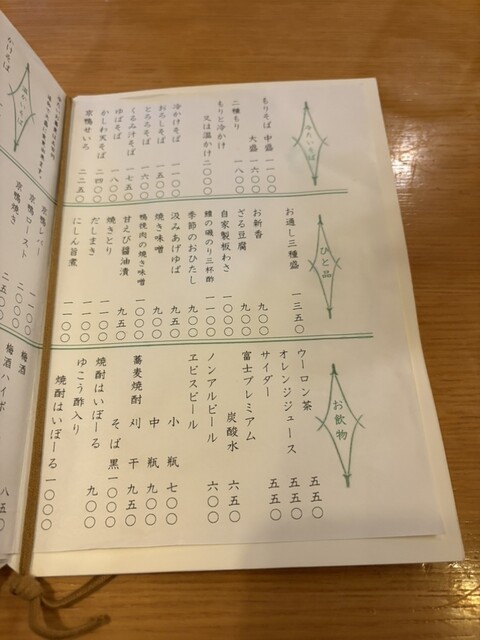 冷たいそば
もりそば 中盛 一一〇〇
大盛 一六〇〇
二種もり 一八〇〇
もりと冷かけ
又は温かけ 二〇〇〇
冷かけそば 一一〇〇
おろしそば 一五〇〇
とろろそば 一六〇〇
くるみ汁そば 一七五〇
ゆばそば 一八〇〇
かしわ天そば 二四〇〇
京鴨せいろ 二二五〇
ひと品
お通し三種盛 一三五〇
お新香 九〇〇
ざる豆腐 九〇〇
自家製板わさ 一〇〇〇
鱧の磯のり三杯酢 一一〇〇
季節のおひたし 九〇〇
汲みあげゆば 九五〇
焼き味噌 九〇〇
鴨挽肉の焼き味噌 一〇〇〇
甘えび醤油漬 九五〇
焼きとり 一一〇〇
だしまき 一一〇〇
にしん旨煮 一一〇〇
お飲物
ウーロン茶 五五〇
オレンジジュース 五五〇
サイダー 五五〇
富士プレミアム
炭酸水 六五〇
ノンアルビール 六〇〇
ヱビスビール
小瓶 七〇〇
中瓶 九〇〇
蕎麦焼酎 刈干 九五〇
そば黒 一〇〇〇
焼酎はいぼーる 九〇〇
ゆこう酢入り
焼酎はいぼーる 一〇〇〇
温かいそば
かけそば
京鴨レバー 一一〇〇
京鴨ロースト 二〇〇〇
京鴨焼き 二五〇〇
梅酒
梅酒ハイボ 八五〇